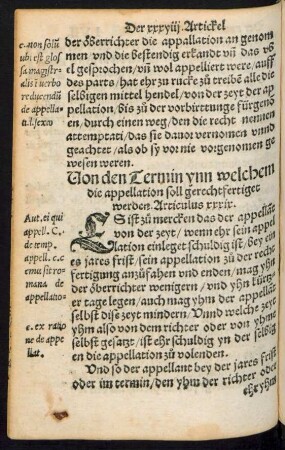 Der xxxviij. Artickel
c. non solū
ubi est glos
sa magistr
alis i verbo
reducendū
de appella
ti. l. sexto
der öberrichter die appallation an genom
men vnd die bestendig erkandt vñ das vr
el gesprochen / vñ wol appelliert were / auff
des parts / hat ehr zu rucke zů treibe alle die
selbigen mittel hendel / von der zeyt der ap
pellation, biß zů der vorbittunge fürgenō
en / durch einen weg / den die recht nennen
attemptati / das sie danor vernomen vnnd
geachtet / als ob sy vor nie vorgenomen ge
wesen weren.
Von den Termin ynn welchem
die appellation soll gerechtfertiget
werden. Articulus xxxix.
Aut. ei qui
appell. C.
de temp.
appell. c. c
mu sit ro
mana de
appellatio
ES ist zů mercken das der appellāt
von der zeyt / wenn ehr sein appel
lation einleget schuldig ist / bey ein
es jares frist / sein appellation zů der recht
fertigung anzůfahen vnd enden / mag yhm
der öberrichter wenigern / vnd yhn kürtz
er tage legen / auch mag yhm der appellāt
selbst dise zeyt mindern / Vnnd welche zeyt
yhm also von dem richter oder von yhme
selbst gesatzt / ist ehr schuldig yn der selbig
en die appellation zů volenden.
c. ex ratio
ne de appe
llat.
Vnd so der appellant bey der jares frist
oder im termin / den yhm der richter oder
ehr yhm